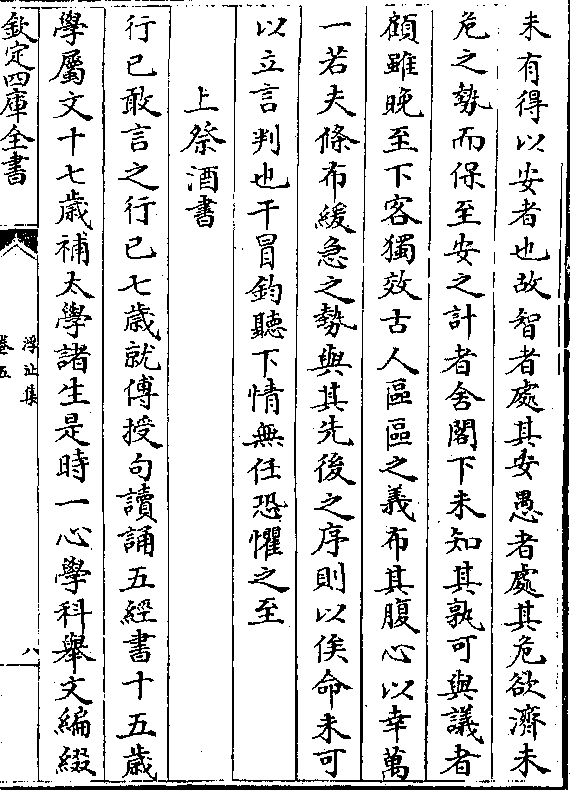 未有得以安者也故智者處其安愚者處其危欲濟未
危之勢而保至安之計者舍閣下未知其孰可與議者
顧雖晚至下客獨效古人區區之義布其腹心以幸萬
一若夫條布緩急之勢與其先後之序則以俟命未可
以立言判也干冒鈞聽下情無任恐懼之至
上祭酒書
行已敢言之行已七歲就傅授句讀誦五經書十五歲
學屬文十七歲補太學諸生是時一心學科舉文編綴
欽定四庫全書
浮沚集
卷五
八